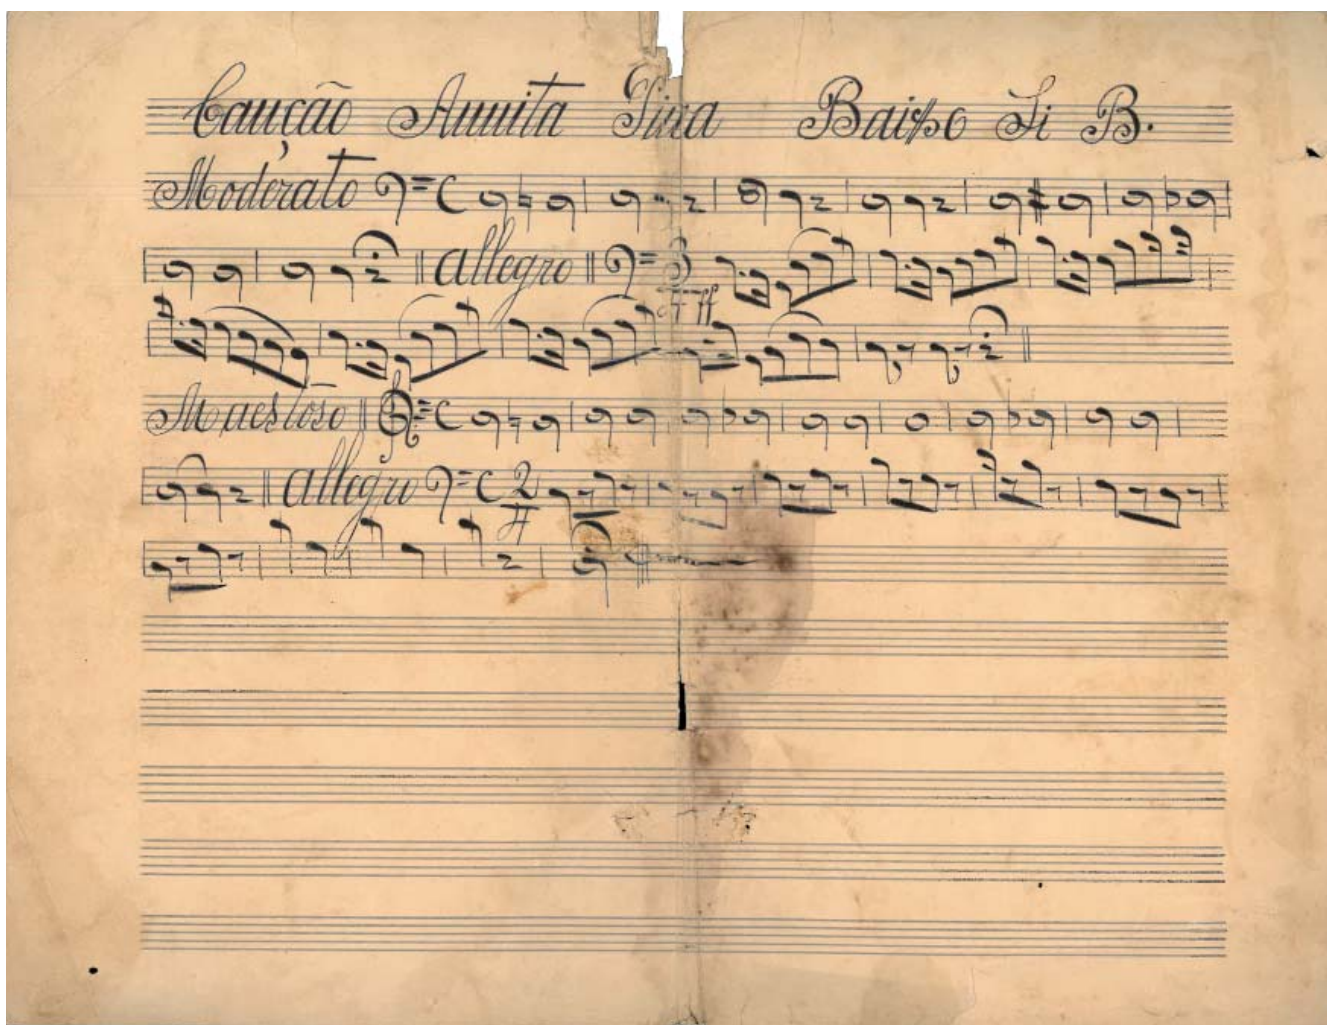 Canção Annita Baixo Si B.
Moderato C
Allegro 3 ff
Maestoso C
Allegro C 2